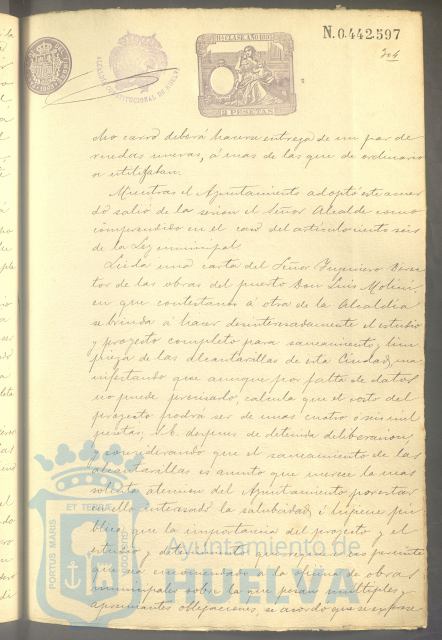 N. 0.442.597
204
11ª CLASE. AÑO 189
2 PESETAS
ALCALDIA CONSTITUCIONAL DE HUELVA
cho carro deberá hacerse entrega de un par de
ruedas nuevas, á mas de las que de ordinario
se utilizaban.
Mientras el Ayuntamiento adoptó este acuer
do salió de la sesion el Señor Alcalde como
comprendido en el caso del articulo ciento seis
de la Ley municipal.
Leida una carta del Señor Ingeniero Direc
tor de las obras del puerto Don Luis Molini,
en que contestando á otra de la Alcaldia
se brinda á hacer desinteresadamente el estudio
y proyecto completo para saneamiento, lim
pieza de las alcantarillas de esta Ciudad, ma
nifestando que aunque por falta de datos
no puede precisarlo, calcula que el costo del
proyecto podrá ser de unas cuatro ó seis mil
pesetas, S.E. despues de detenida deliberacion,
y considerando que el saneamiento de las
alcantarillas es asunto que merece la mas
solicita atencion del Ayuntamiento por estar
en ello interesada la salubridad é higiene pú
blica, que la importancia del proyecto y el
estudio y detenimiento que
que sea encomendado á la oficina de obras
municipales sobre la que pesan multiples y
apremiantes obligaciones, se acordó que se exprese
PORTUS MARIS
ET TERRAE
CUSTODIA
Ayuntamiento de
HUELVA